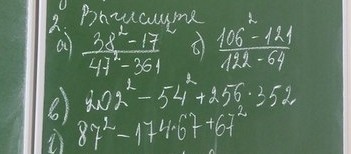 2. Вычислите
а) (38² - 17²)/(47² - 361) б) (106² - 121)/(122 - 64)
в) 202² - 54² + 256 · 352
г) 87² - 174 · 67 + 67²